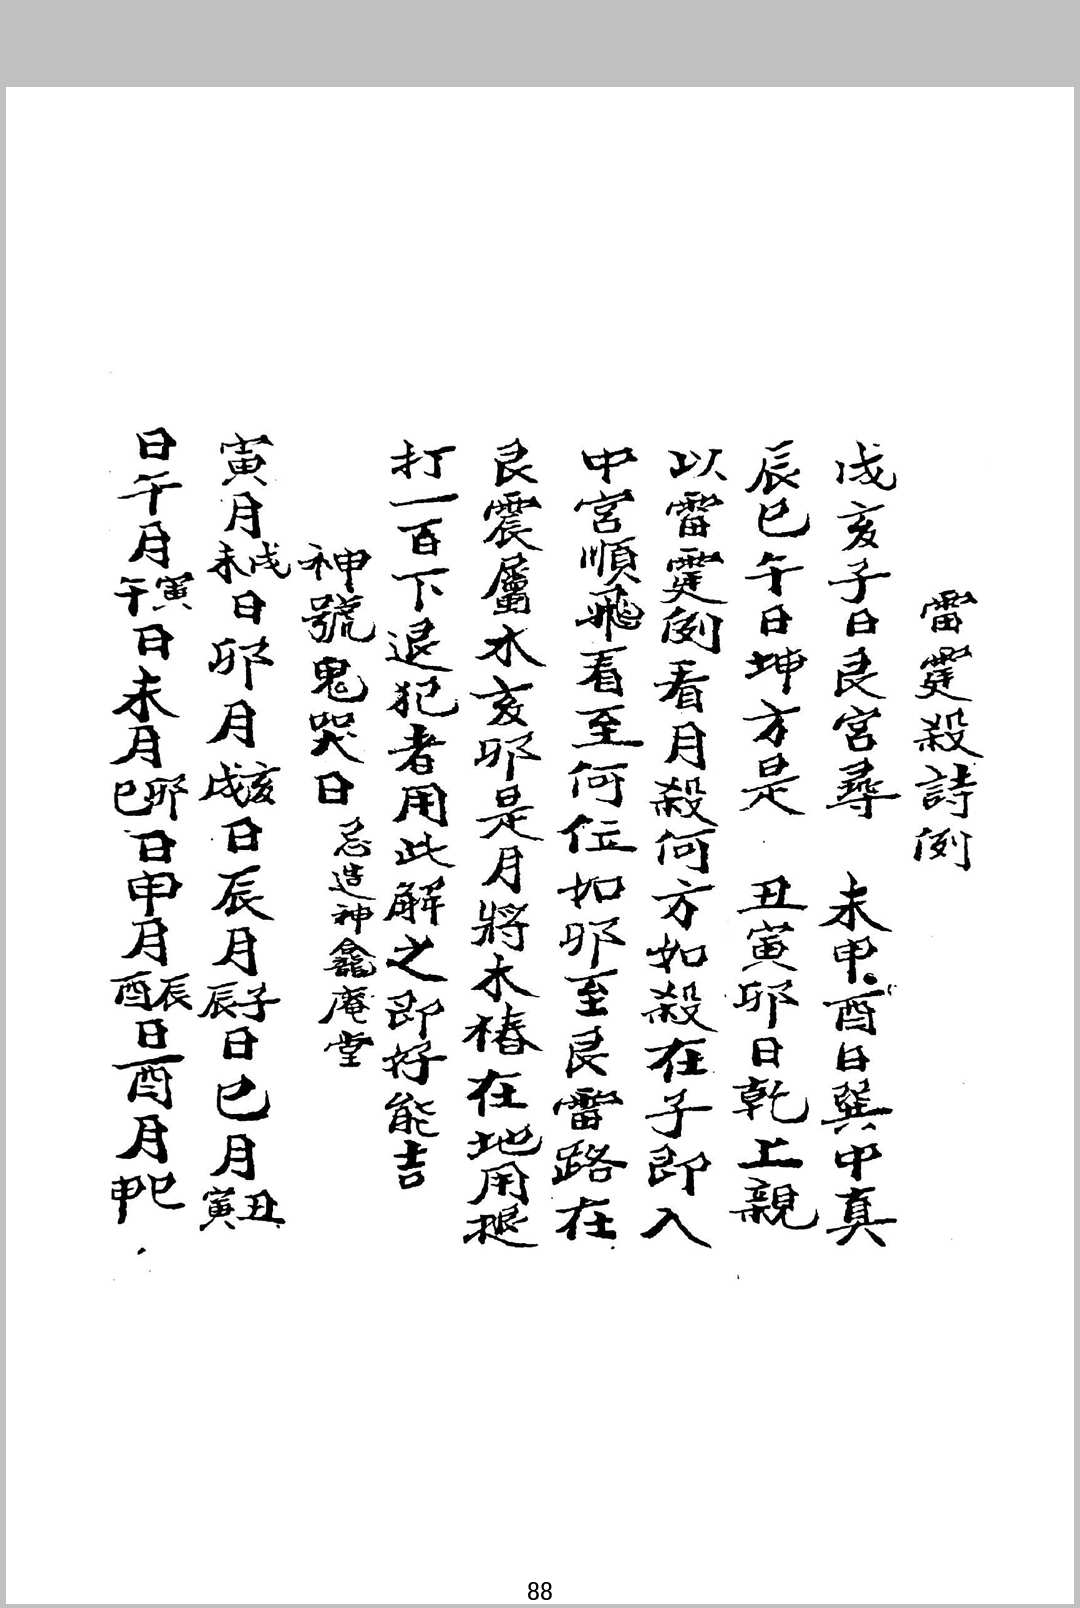 雷霆殺詩例
戌亥子日艮宮尋 未申酉日巽中真
辰巳午日坤方是 丑寅卯日乾上親
以雷霆例看月殺何方如殺在子即入
中宮順飛看至何位如卯至艮雷路在
艮震屬木亥卯是月將木樁在地用搥
打一百下退犯者用此解之即好能吉
神號鬼哭日 忌造神龕庵堂
寅月戌未日卯月亥戌日辰月子辰日巳月丑寅
日午月寅午日未月卯巳日申月辰酉日酉月巳申
88